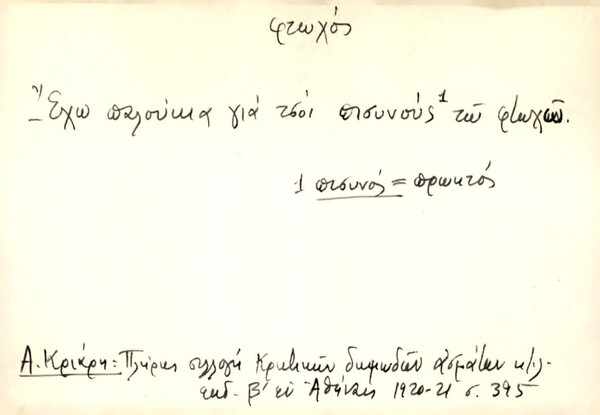 φτωχός
– Ἔχω παλούκια γιά τσοί πισυνούς¹ τῶ φτωχῶ.
1 πισυνός = πρωκτός
Α. Κριάρη: Πλήρης συλλογή Κρητικῶν δημωδῶν ᾀσμάτων κ.λ.
ἐκδ. β' ἐν Ἀθήναις 1920-21 σ. 395